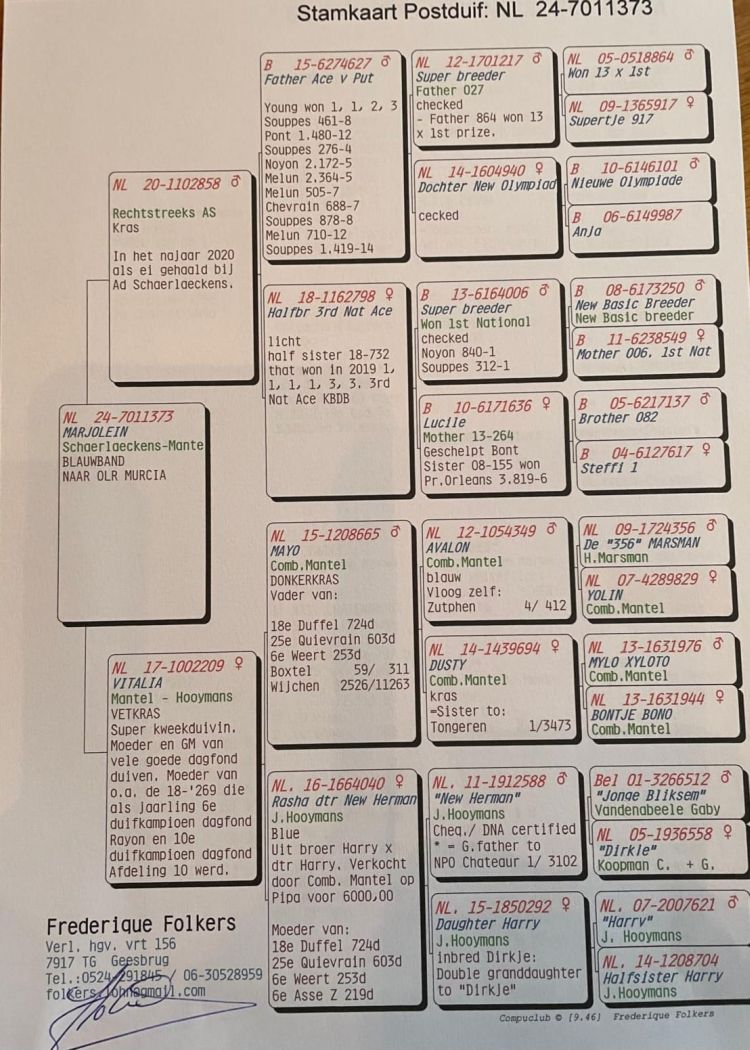 Stamkaart Postduif: NL 24-7011373
NL 24-7011373
MARJOLEIN
Schaerlaeckens-Mante
BLAUWBAND
NAAR OLR MURCIA
NL 20-1102858 ♂
Rechtstreeks AS
Kras
In het najaar 2020
als ei gehaald bij
Ad Schaerlaeckens.
NL 17-1002209 ♀
VITALIA
Mantel - Hooymans
VETKRAS
Super kweekduivin.
Moeder en GM van
vele goede dagfond
duiven. Moeder van
o.a. de 18-'269 die
als jaarling 6e
duifkampioen dagfond
Rayon en 10e
duifkampioen dagfond
Afdeling 10 werd.
B 15-6274627 ♂
Father Ace v Put
Young won 1, 1, 2, 3
Souppes 461-8
Pont 1.480-12
Souppes 276-4
Noyon 2.172-5
Melun 2.364-5
Melun 505-7
Chevrain 688-7
Souppes 878-8
Melun 710-12
Souppes 1.419-14
NL 18-1162798 ♀
Halfbr 3rd Nat Ace
licht
half sister 18-732
that won in 2019 1,
1, 1, 1, 3, 3. 3rd
Nat Ace KBDB
NL 15-1208665 ♂
MAYO
Comb.Mantel
DONKERKRAS
Vader van:
18e Duffel 724d
25e Quievrain 603d
6e Weert 253d
Boxtel 59/ 311
Wijchen 2526/11263
NL. 16-1664040 ♀
Rasha dtr New Herman
J.Hooymans
Blue
Uit broer Harry x
dtr Harry. Verkocht
door Comb. Mantel op
Pipa voor 6000,00
Moeder van:
18e Duffel 724d
25e Quievrain 603d
6e Weert 253d
6e Asse Z 219d
NL 12-1701217 ♂
Super breeder
Father 027
checked
- Father 864 won 13
x 1st prize.
NL 14-1604940 ♀
Dochter New Olympiad
cecked
B 13-6164006 ♂
Super breeder
Won 1st National
checked
Noyon 840-1
Souppes 312-1
B 10-6171636 ♀
Lucile
Mother 13-264
Geschelpt Bont
Sister 08-155 won
Pr.Orleans 3.819-6
NL 12-1054349 ♂
AVALON
Comb.Mantel
blauw
Vloog zelf:
Zutphen 4/ 412
NL 14-1439694 ♀
DUSTY
Comb.Mantel
kras
=Sister to:
Tongeren 1/3473
NL. 11-1912588 ♂
"New Herman"
J.Hooymans
Cheq./ DNA certified
* = G.father to
NPO Chateaur 1/ 3102
NL. 15-1850292 ♀
Daughter Harry
J.Hooymans
inbred Dirkje:
Double granddaughter
to "Dirkje"
NL 05-0518864 ♂
Won 13 x 1st
NL 09-1365917 ♀
Supertje 917
B 10-6146101 ♂
Nieuwe Olympiade
B 06-6149987
Anja
B 08-6173250 ♂
New Basic Breeder
New Basic breeder
B 11-6238549 ♀
Mother 006. 1st Nat
B 05-6217137 ♂
Brother 082
B 04-6127617 ♀
Steffi 1
NL 09-1724356 ♂
De "356" MARSMAN
H.Marsman
NL 07-4289829 ♀
YOLIN
Comb.Mantel
NL 13-1631976 ♂
MYLO XYLOTO
Comb.Mantel
NL 13-1631944 ♀
BONTJE BONO
Comb.Mantel
Bel 01-3266512 ♂
"Jonge Bliksem"
Vandenabeele Gaby
NL 05-1936558 ♀
"Dirkje"
Koopman C. + G.
NL. 07-2007621 ♂
"Harry"
J. Hooymans
NL. 14-1208704
Halfsister Harry
J.Hooymans
Frederique Folkers
Verl. hgv. vrt 156
7917 TG Geesbrug
Tel.:0524-291845 / 06-30528959
folkers.john@gmail.com
Compuclub © [9.46] Frederique Folkers